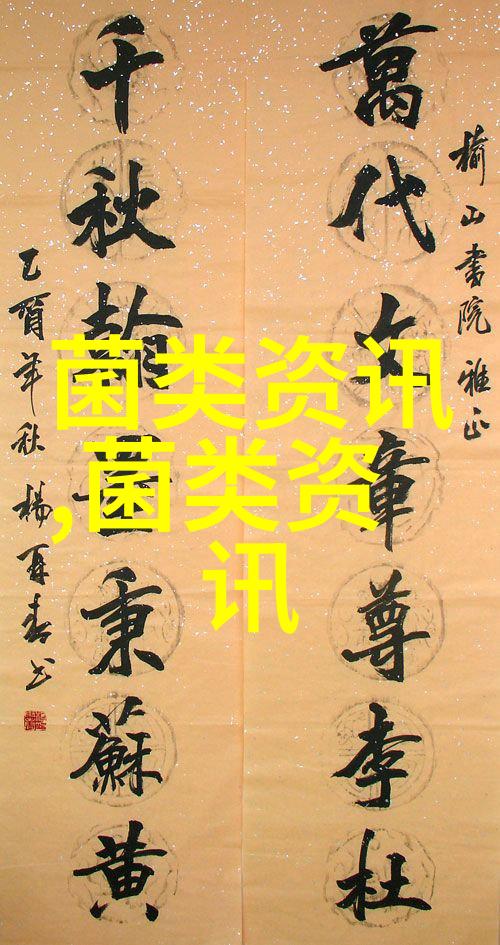 榆山書院雅正
萬代文章尊李杜
千秋翰墨秉蘇黄
乙酉年秋楊再春书
菌类资讯
,菌类资
讯